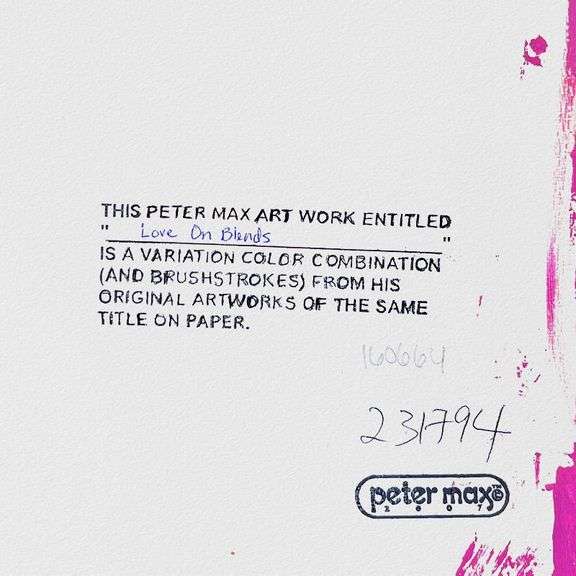 THIS PETER MAX ART WORK ENTITLED
" Love On Blends "
IS A VARIATION COLOR COMBINATION
(AND BRUSHSTROKES) FROM HIS
ORIGINAL ARTWORKS OF THE SAME
TITLE ON PAPER.
160664
231794
peter max
2 0 7